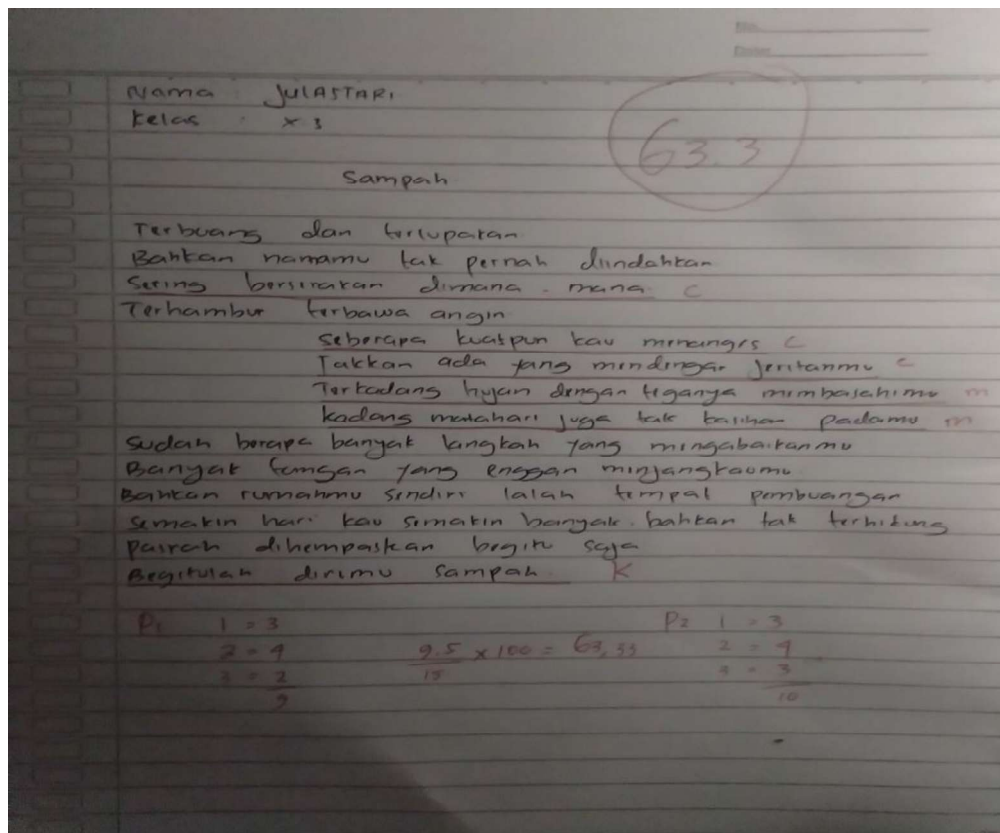 Nama : JULASTARI
Kelas : X 3
63.3
Sampah
Terbuang dan terlupakan
Bahkan namamu tak pernah diindahkan
Sering berserakan dimana - mana C
Terhambur terbawa angin
Seberapa kuatpun kau menangis C
Takkan ada yang mendengar jeritanmu C
Terkadang hujan dengan teganya membasahimu m
kadang matahari juga tak kasihan padamu m
Sudah berapa banyak langkah yang mengabaikanmu
Banyak tangan yang enggan menjangkaumu
Bahkan rumahmu sendiri lalah tempat pembuangan
Semakin hari kau semakin banyak bahkan tak terhitung
Pasrah dihempaskan begitu saja
Begitulah dirimu sampah. K
P1 1 = 3 P2 1 = 3
2 = 4 9.5 x 100 = 63,33 2 = 4
3 = 2 15 3 = 3
9 10